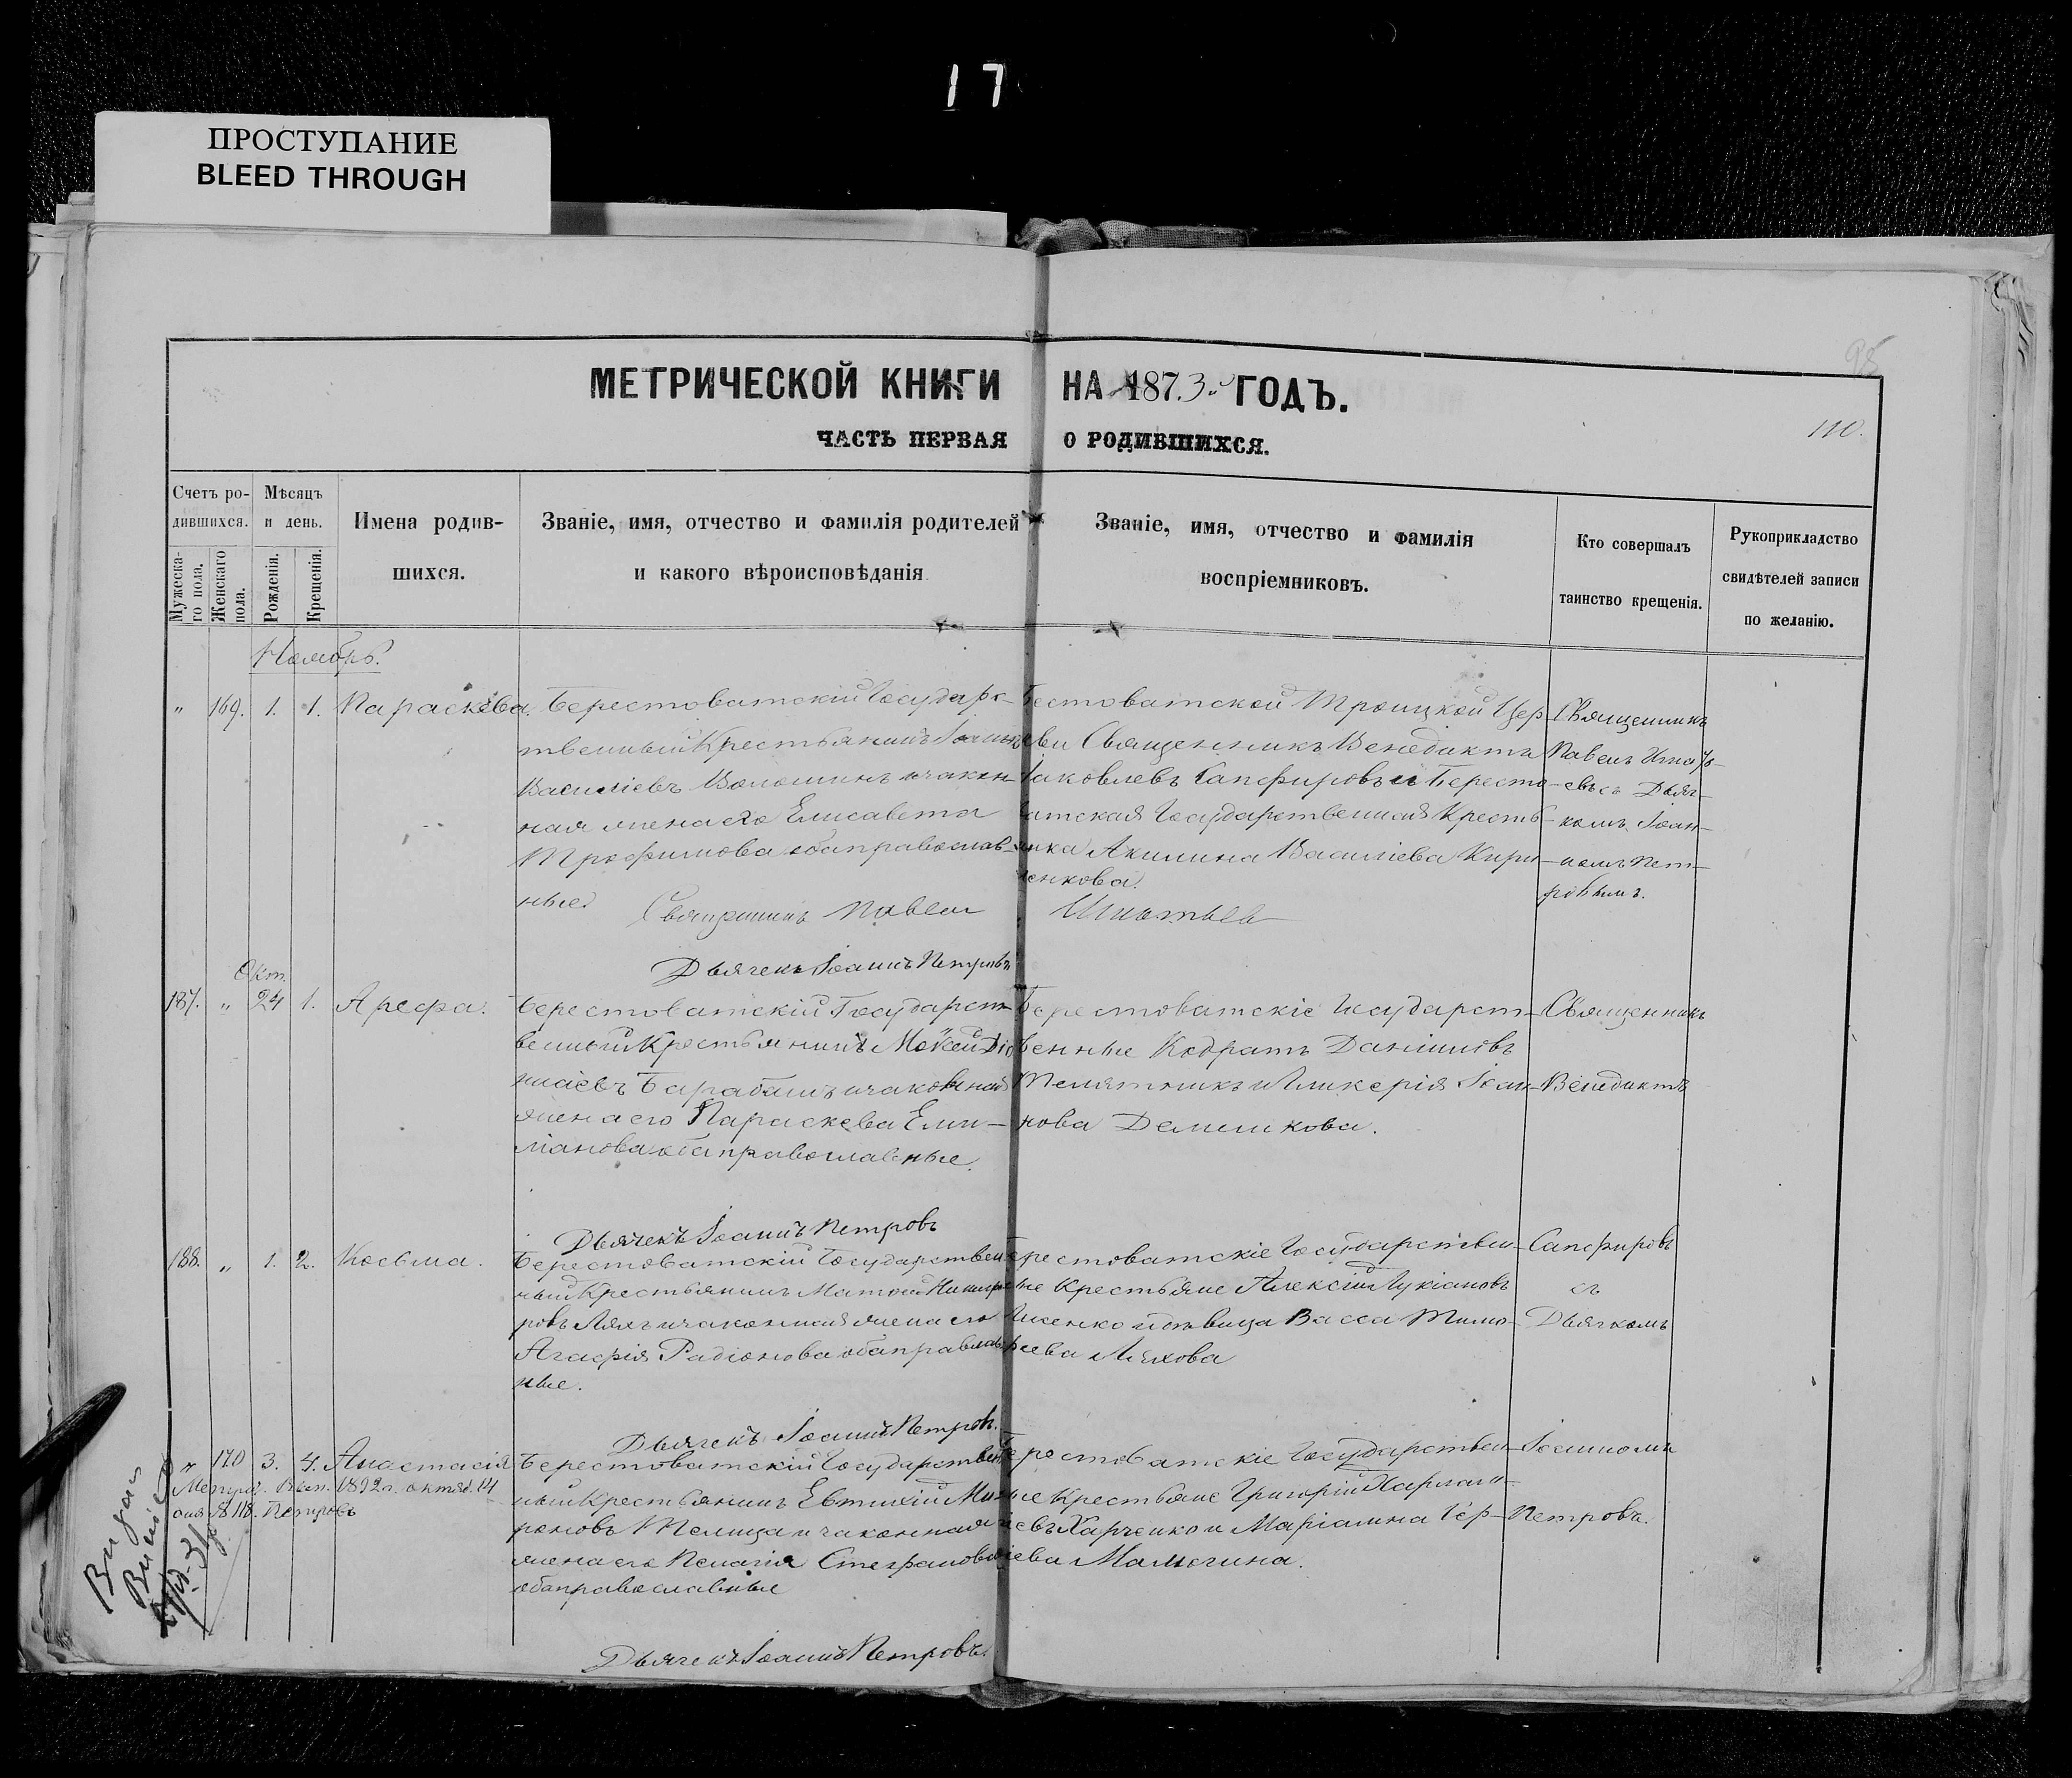 17
ПРОСТУПАНИЕ
BLEED THROUGH
95
МЕТРИЧЕСКОЙ КНИГИ НА 1873 ГОДЪ.
ЧАСТЬ ПЕРВАЯ О РОДИВШИХСЯ.
110.
Счетъ ро-
дившихся.
Мужеска-
го пола.
Женскаго
пола.
Мѣсяцъ
и день.
Рожденія.
Крещенія.
Имена родив-
шихся.
Званіе, имя, отчество и фамилія родителей
и какого вѣроисповѣданія
Званіе, имя, отчество и фамилія
воспріемниковъ.
Кто совершалъ
таинство крещенія.
Рукоприкладство
свидѣтелей записи
по желанію.
Ноябрь.
" 169. 1. 1. Параскева.
Берестоватскій Государс-
твенный Крестьянинъ Іоаннъ
Василіевъ Волошинъ и закон-
ная жена его Елисавета
Трофимова оба православ-
ные
Берестоватской Троицкой Цер-
кви Священникъ Венедиктъ
Іаковлевъ Сапфировъ и Бересто-
ватская Государственная Кресть-
янка Акилина Василіева Кири-
ченкова.
Священникъ
Павелъ Игнать-
евъ съ Дьяч-
комъ Іоан-
номъ Пет-
ровымъ.
Священникъ Павелъ Игнатьевъ
Дьячекъ Іоаннъ Петровъ
Окт.
187. " 24 1. Арефа.
Берестоватскій Государст-
венный Крестьянинъ Мокей Діо-
нисіевъ Барабашъ и законная
жена его Параскева Еми-
ліанова оба православные.
Берестоватскіе Государст-
венные Кодратъ Даніиловъ
Телятникъ и Гликерія Іоан-
нова Демешкова.
Священникъ
Венедиктъ
Дьячекъ Іоаннъ Петровъ
188. " 1. 2. Косьма.
Берестоватскій Государствен-
ный Крестьянинъ Матфей Никифо-
ровъ Ляхъ и законная жена его
Агафія Радіонова оба православ-
ные.
Берестоватскіе Государствен-
ные Крестьяне Алексій Лукіановъ
и дѣвица Васса Тимо-
феева Ляхова
Сапфировъ
съ
Дьячкомъ
Дьячекъ Іоаннъ Петровъ.
" 170 3. 4. Анастасія
Берестоватскій Государствен-
ный Крестьянинъ Евтихій Ми-
роновъ Телица и законная
жена его Пелагія Стефанова
оба православные
Берестоватскіе Государствен-
ные Крестьяне Григорій Харлам-
піевъ Харченко и Маріамна Сер-
гіева Малыгина.
Іоанномъ
Петровъ.
Метрич. Вып. 1892 г. октяб. 14
дня № 118. Петровъ
Дьячекъ Іоаннъ Петровъ.